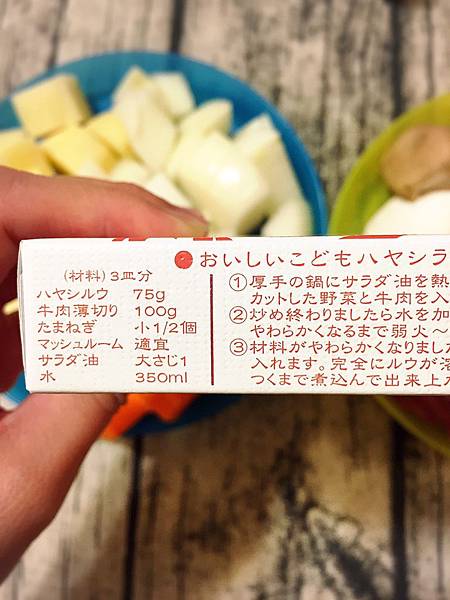 ●おいしいこどもハヤシラ
(材料) 3皿分
ハヤシルウ 75g
牛肉薄切り 100g
たまねぎ 小1/2個
マッシュルーム 適宜
サラダ油 大さじ1
水 350ml
①厚手の鍋にサラダ油を熱
カットした野菜と牛肉を入
②炒め終わりましたら水を加
やわらかくなるまで弱火〜
③材料がやわらかくなりまし
入れます。完全にルウが溶
つくまで煮込んで出来上